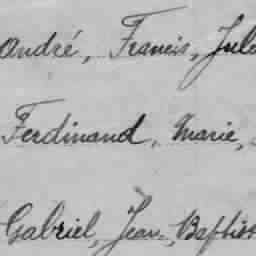 André, Francis, Jule
Ferdinand, Marie,
Gabriel, Jean-Baptis